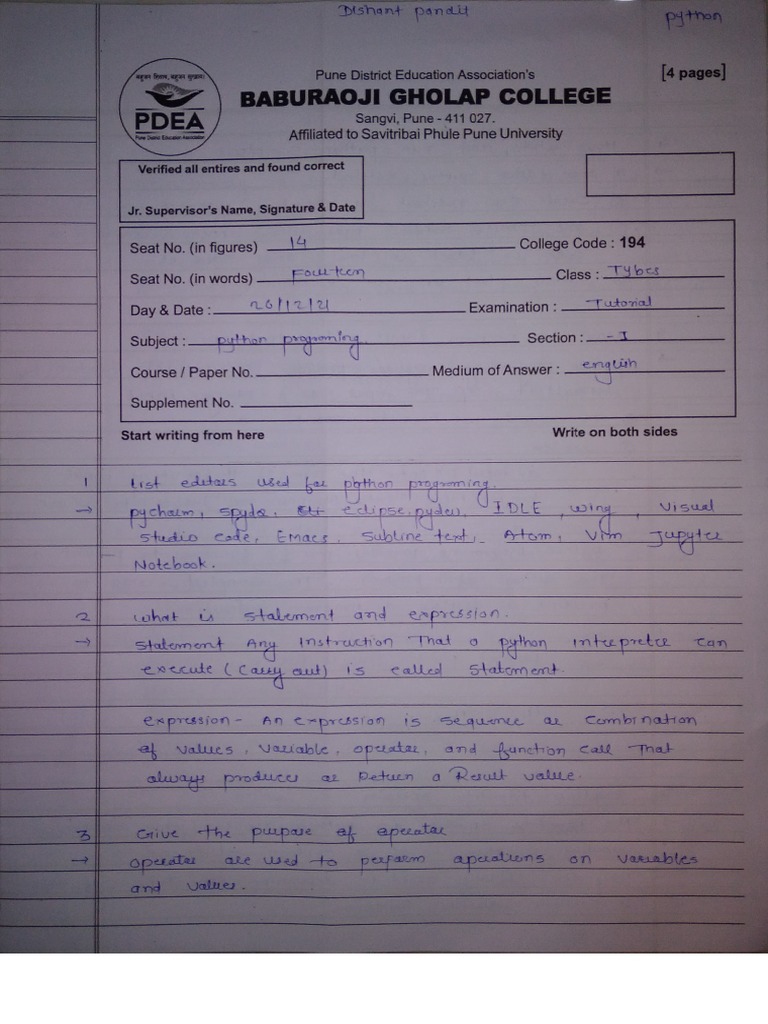 Dishant pandit
python
[4 pages]
Pune District Education Association's
BABURAOJI GHOLAP COLLEGE
Sangvi, Pune - 411 027.
Affiliated to Savitribai Phule Pune University
बहुजन हिताय, बहुजन सुखाय
PDEA
Pune District Education Association
Verified all entires and found correct
Jr. Supervisor's Name, Signature & Date
Seat No. (in figures) 14 College Code : 194
Seat No. (in words) Fourteen Class : Tybcs
Day & Date : 26/12/21 Examination : Tutorial
Subject : python programing Section : - I
Course / Paper No. Medium of Answer : english
Supplement No.
Start writing from here Write on both sides
1 List editors used for python programing.
→ pycharm, spyder, eclipse.pydev, IDLE, wing, Visual
studio code, Emacs, Subline text, Atom, Vim Jupyter
Notebook.
2 What is statement and expression.
→ Statement Any Instruction That a python intrepreter can
execute (carry out) is called Statement.
expression - An expression is sequence or combination
of values, variable, operator, and function call That
always produces or Return a Result value.
3 Give the purpose of operator
→ operator are used to perform operations on variables
and values.